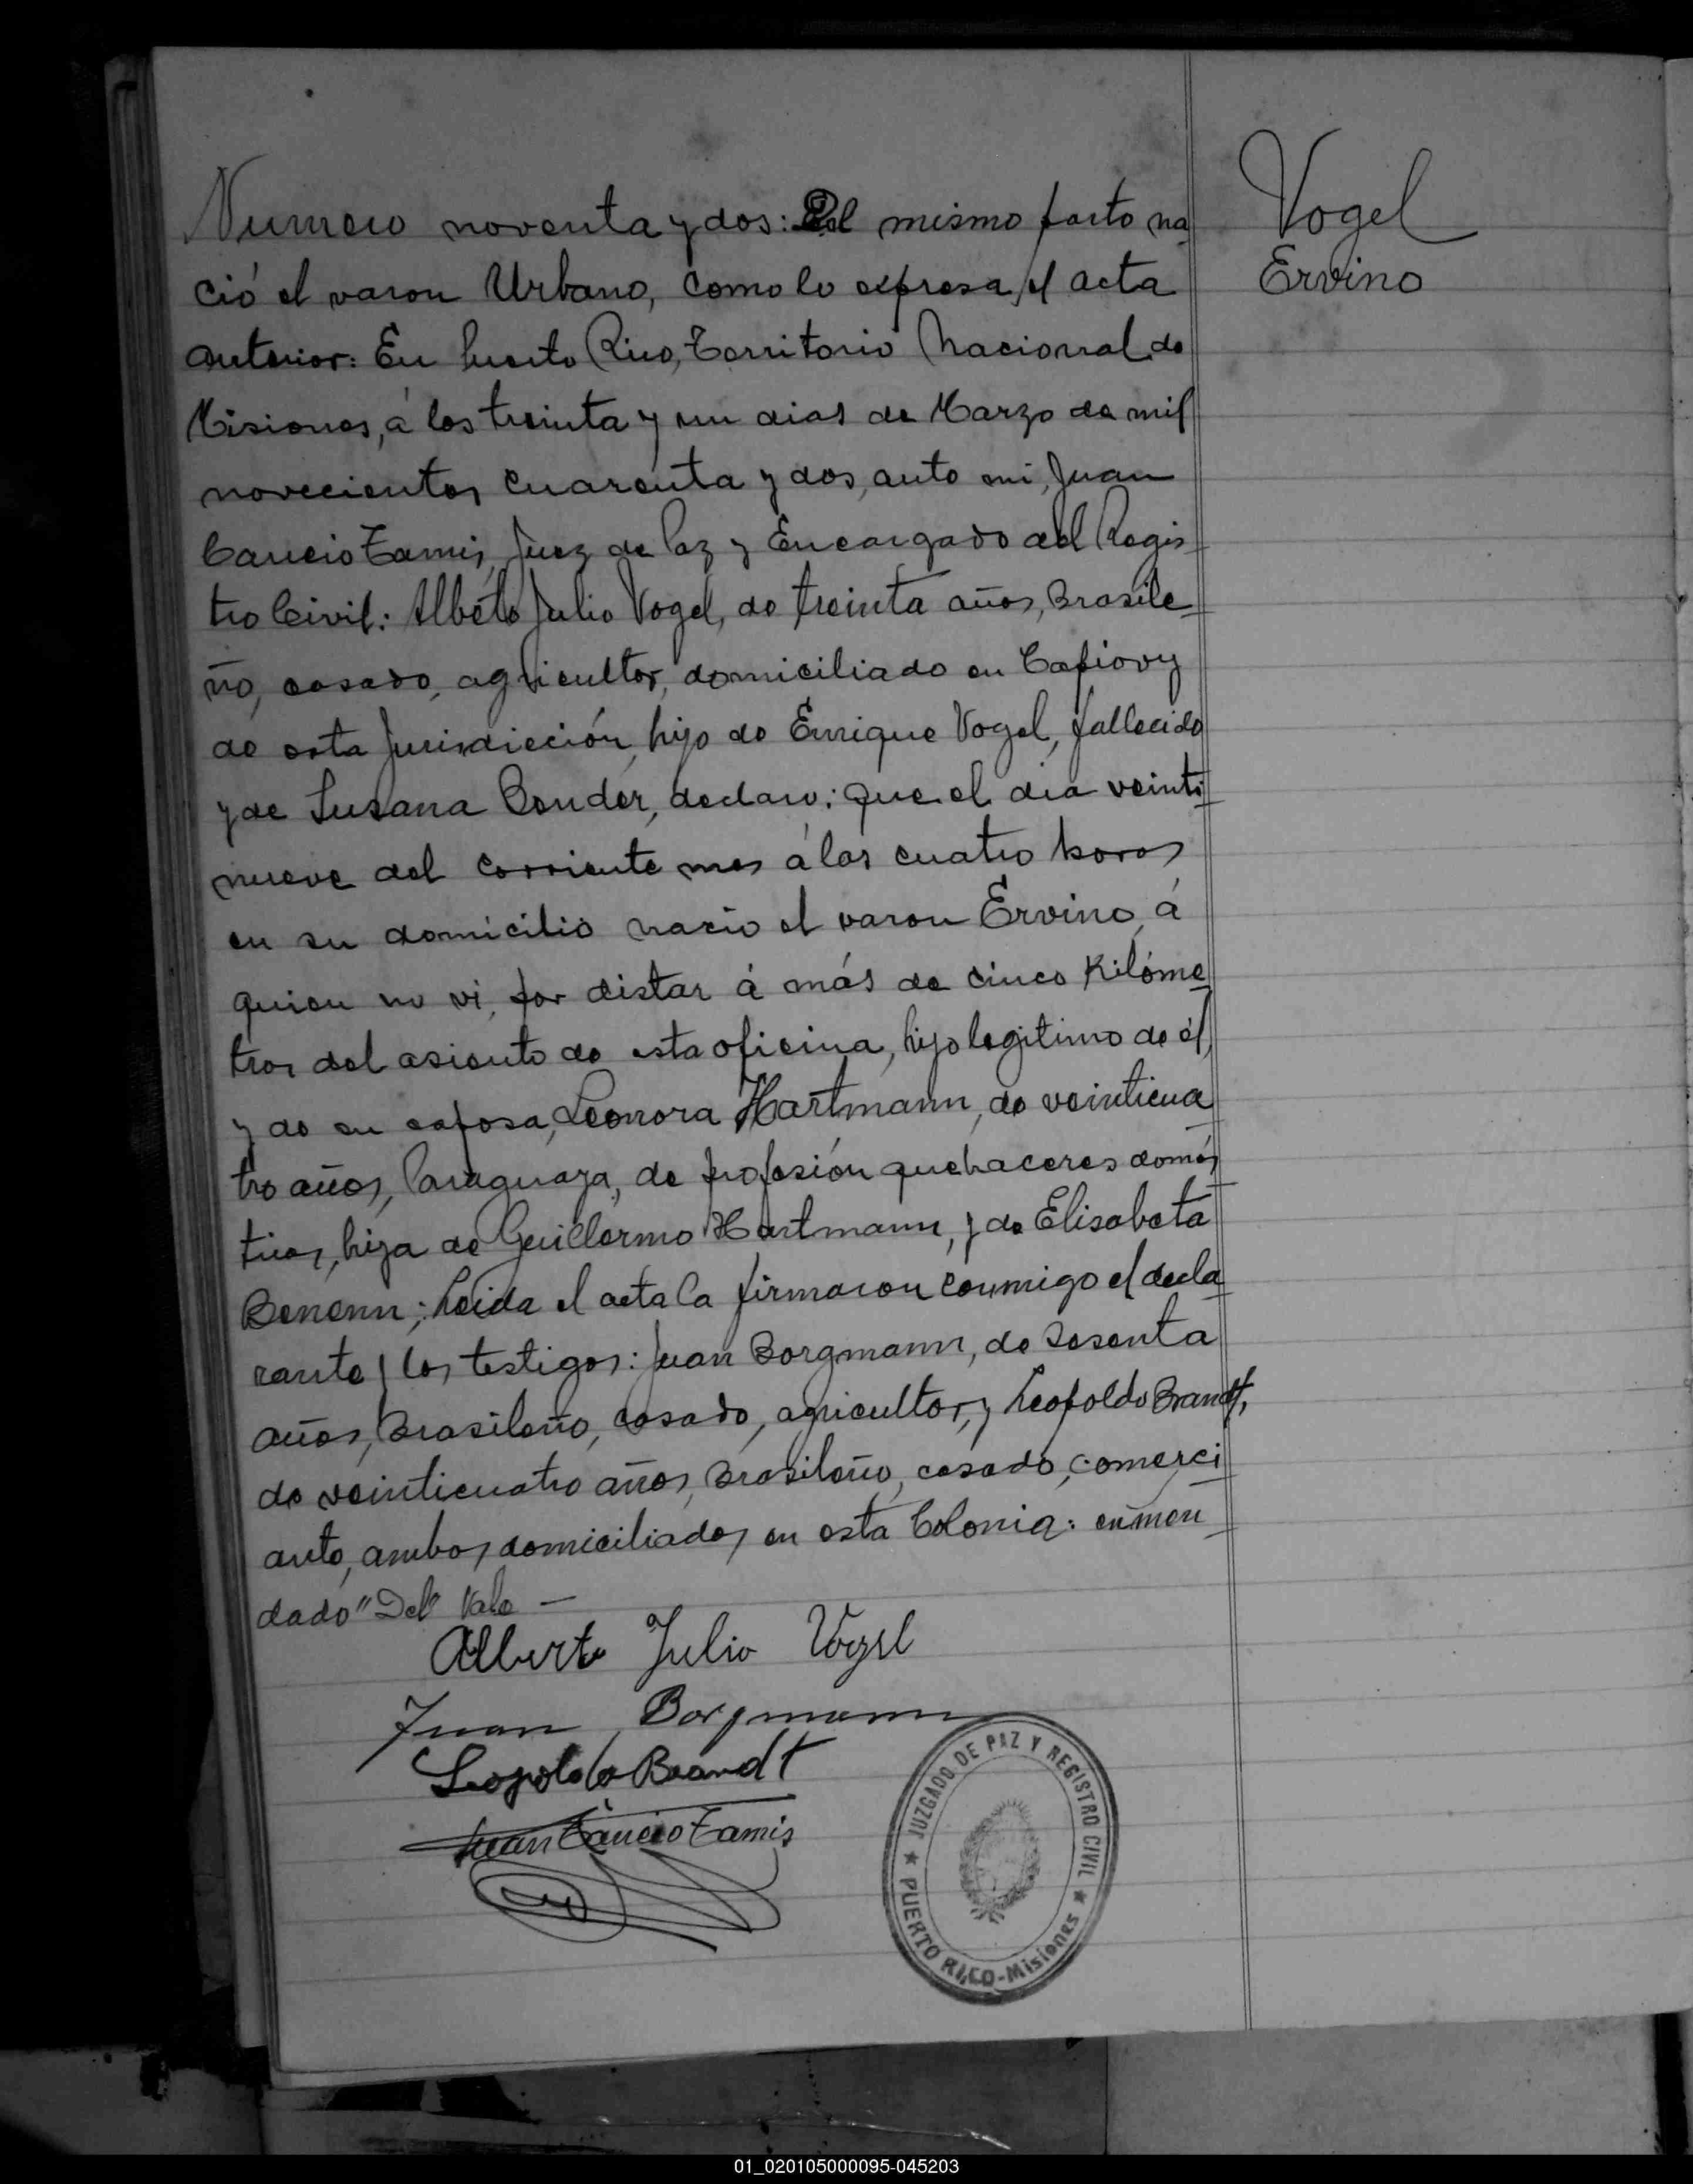 Numero noventa y dos: Del mismo parto na
ció el varon Urbano, como lo expresa el acta
anterior: En Puerto Rico, Territorio Nacional de
Misiones, á los treinta y un dias de Marzo de mil
novecientos cuarenta y dos, ante mi, Juan
Cancio Tamis, Juez de Paz y Encargado del Regis
tro Civil: Albeto Julio Vogel, de treinta años, Brasile
ño, casado, agricultor, domiciliado en Capiovy
de esta Jurisdicción, hijo de Enrique Vogel, fallecido
y de Susana Bender, declaro: que el dia veinti
nueve del corriente mes á las cuatro horas
en su domicilio nació el varon Ervino, á
quien no vi, por distar á más de cinco Kilóme
tros del asiento de esta oficina, hijo legitimo de él,
y de su esposa, Leonora Hartmann, de veinticua
tro años, Paraguaya, de profesión quehaceres domés
ticos, hija de Guillermo Hartmann, y de Elisabeta
Benenn; Leida el acta la firmaron conmigo el decla
rante y los testigos: Juan Borgmann, de sesenta
años, Brasileño, casado, agricultor, y Leopoldo Brandt,
de veinticuatro años, Brasileño, casado, comerci
ante, ambos domiciliados en esta Colonia: enmen
dado "Del" Vale —
Alberto Julio Vogel
Juan Borgmann
Leopoldo Brandt
Juan Cancio Tamis
Vogel
Ervino
JUZGADO DE PAZ Y REGISTRO CIVIL
★ PUERTO RICO-Misiones ★
01_020105000095-045203